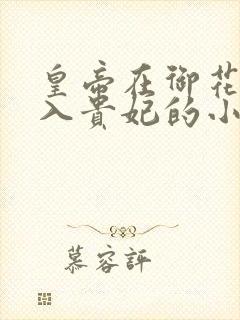 皇帝在御花
入贵妃的小
慕容評